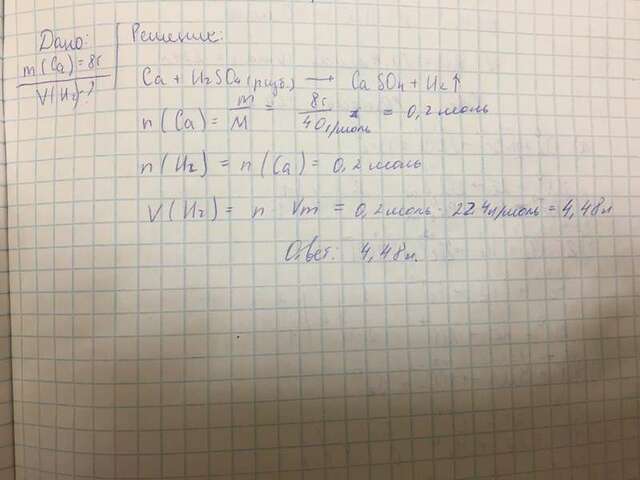 Дано:
m(Ca)=8г
V(H2)-?
Решение:
Ca + H2SO4(разб.) → CaSO4 + H2↑
n(Ca) = m/M = 8г/40г/моль = 0,2 моль
n(H2) = n(Ca) = 0,2 моль
V(H2) = n · Vm = 0,2 моль · 22,4л/моль = 4,48л
Ответ: 4,48л.